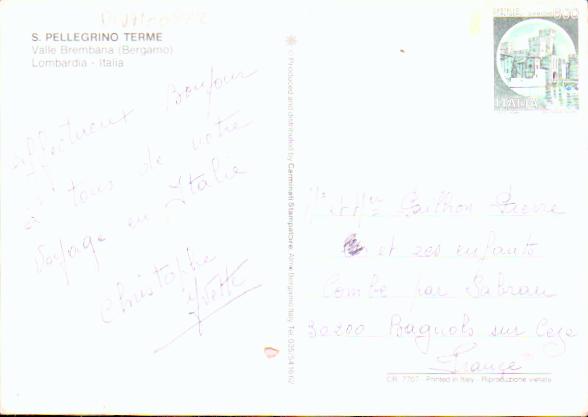 S. PELLEGRINO TERME
Valle Brembana (Bergamo)
Lombardia - Italia
Affectueux Bonjour
à tous de notre
Voyage en Italie
Christophe
Yvette
Produced and distributed by Carminati Stampatore, Alme Bergamo Italy Tel. 035/541662
ITALIA
Mr et Mme Pierre
et ses enfants
Combe par Sabran
30200 Bagnols sur Ceze
France
CR. 7707 - Printed in Italy - Riproduzione vietata